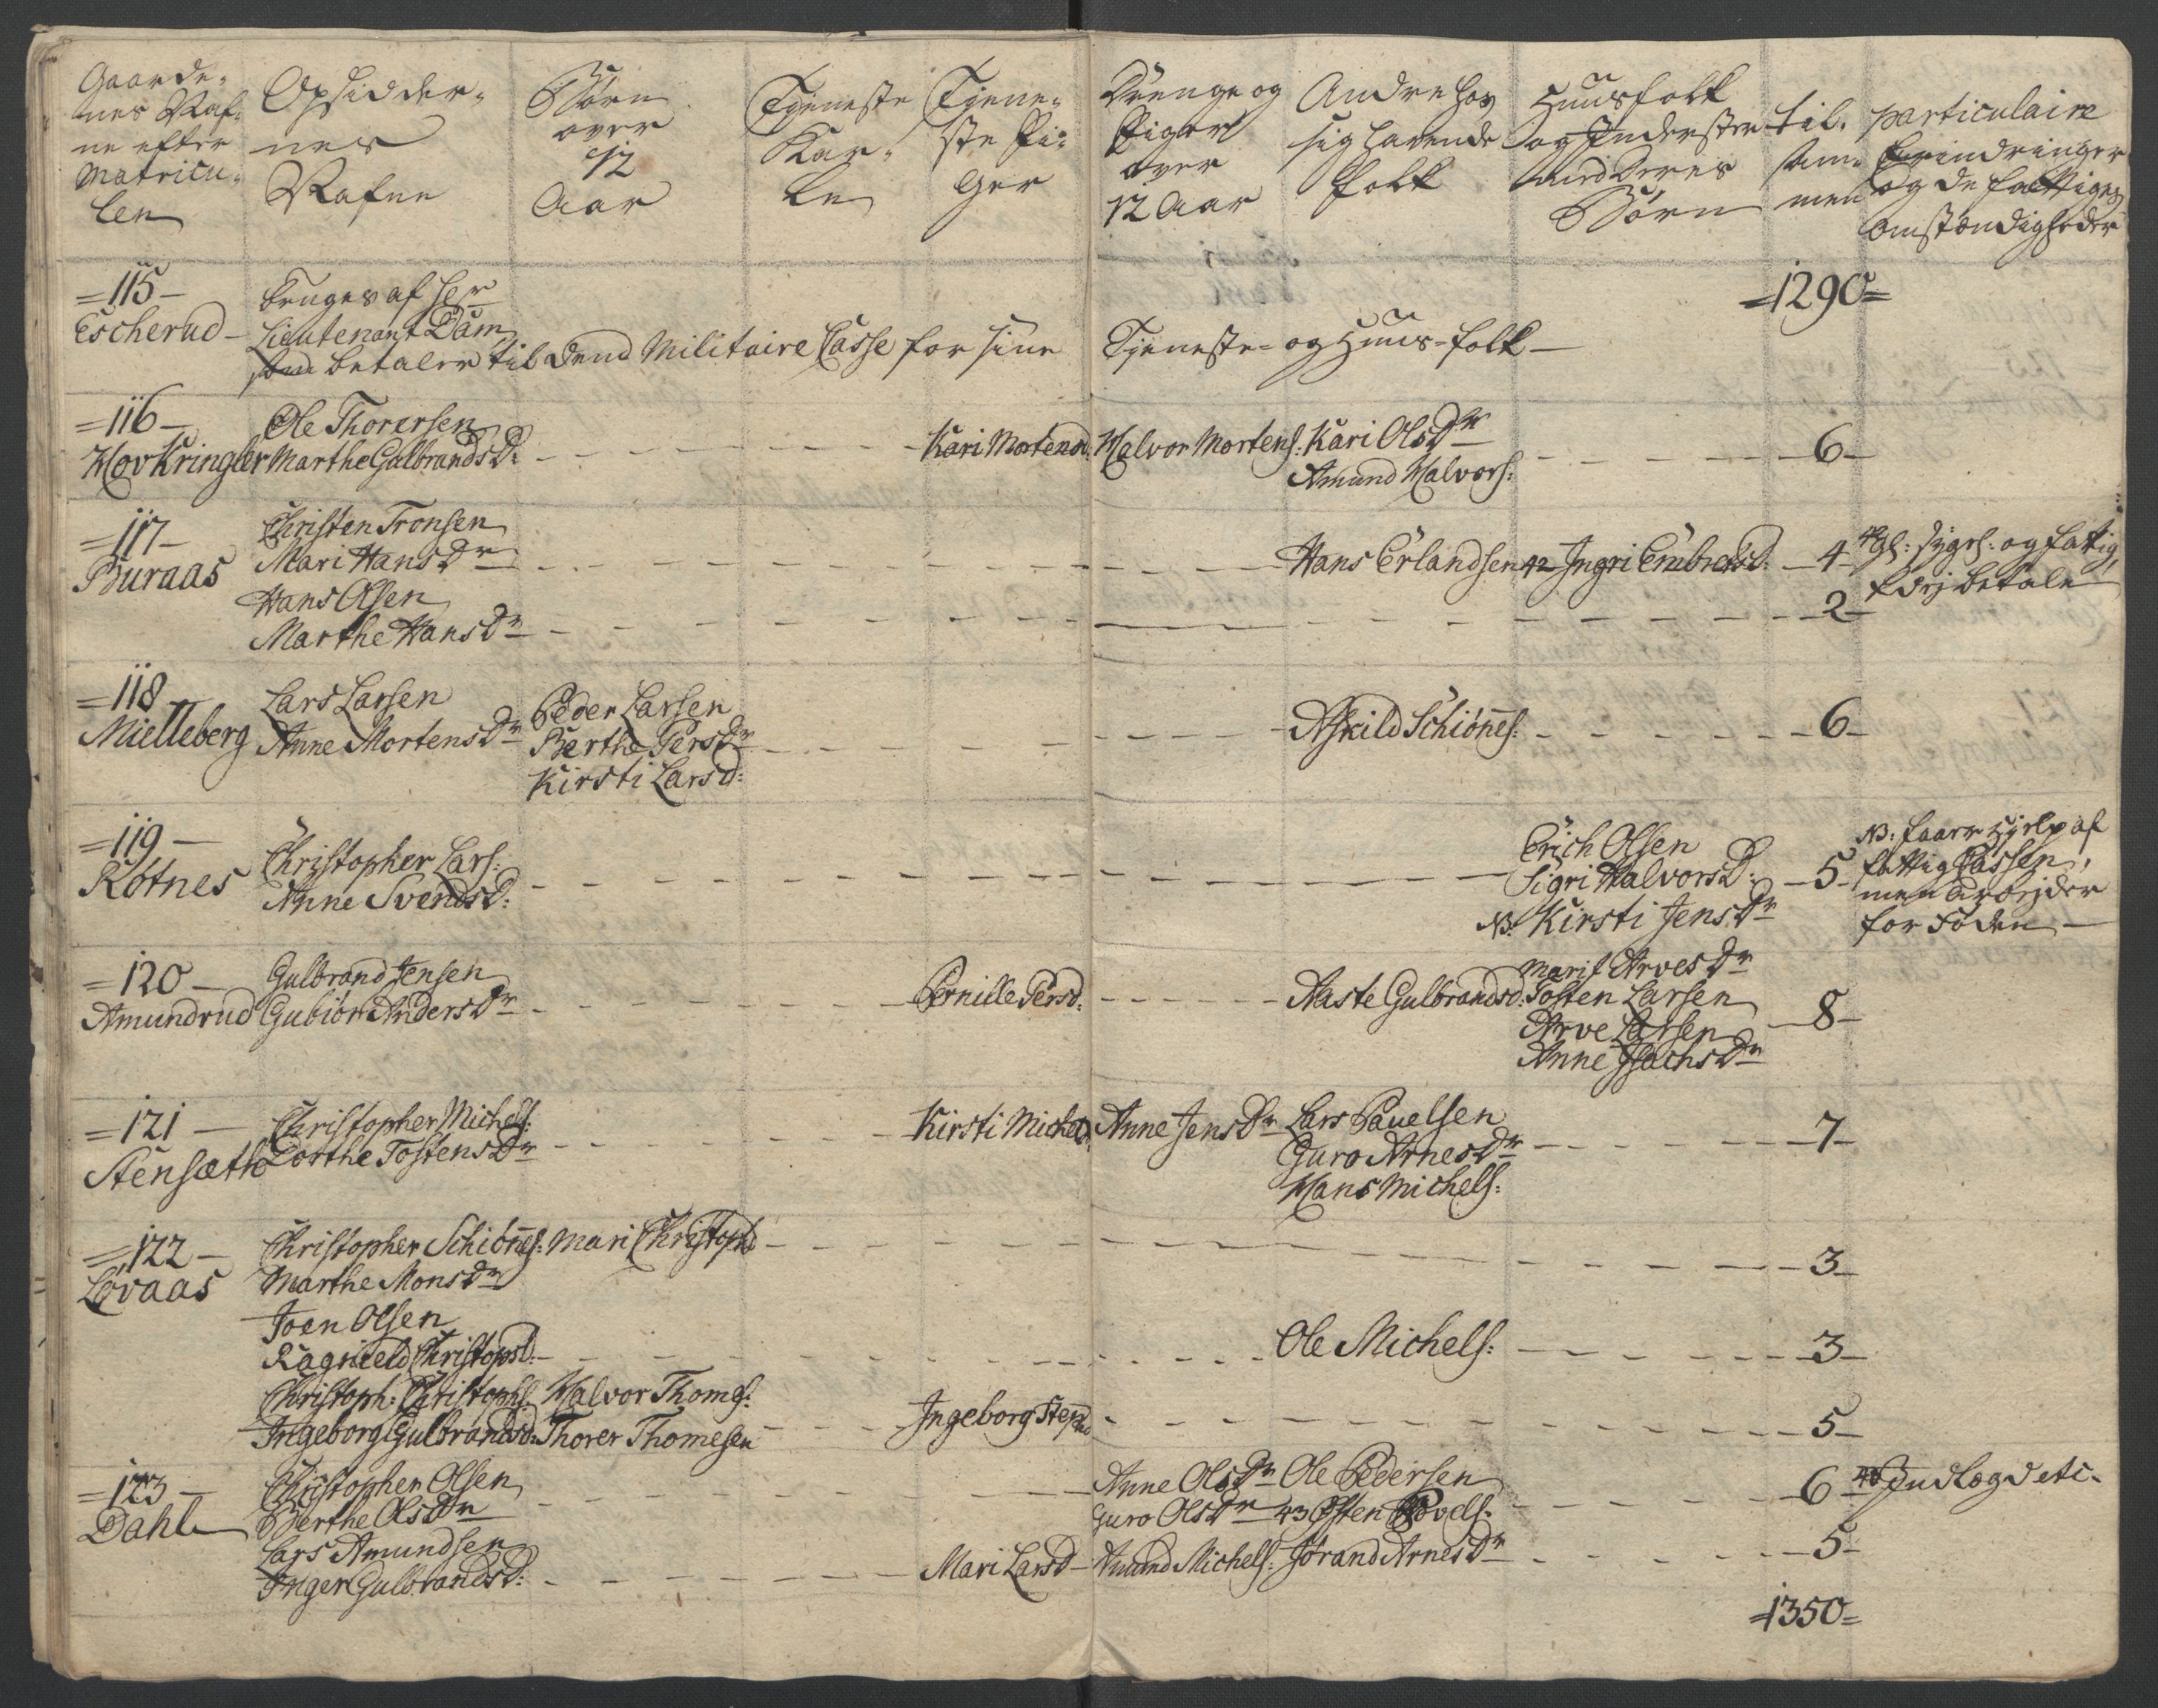 Gaarde-
nes Nafne
efter
Matricu-
len
Opsidder-
nes
Nafne
Børn
over
12
Aar
Tjeneste
Kar-
le
Tjene-
ste Pi-
ger
Drenge og
Piger
over
12 Aar
Andre hos
sig havende
folk
Huusfolk
og Inderster
med deres
Børn
til-
sam-
men
particulaire
Erindringer
og de fattiges
omstændigheder
=1290=
=115-
Escherud-
bruges af Hr
Lieutenant Dam
som betaler til dend Militaire Casse for sine Tjeneste- og Huus-folk-
=116-
Hovkringler
Ole Thorersen
Marthe Gulbrandsd:
Kari Mortensd:
Halvor Mortens:
Kari OlsDr
Amund Halvors:
6-
=117-
Buraas
Christen Tronsen
Mari HansDr
Hans Erlandsen
42 Ingri Embretsd:
-4-
sygel: og fatig,
kd ej betale
Hans Olsen
Marthe HansDr
2-
=118-
Mielleberg
Lars Larsen
Anne MortensDr
Peder Larsen
Berthe PersDr
Kirsti Larsd:
Askild Schiönes:
-6-
=119-
Kotnes
Christopher Lars:
Anne Svendsd:
Erich Olsen
Sigri Halvorsd:
NB: Kirsti JensDr
-5-
NB: faar Hjelp af
fattig Cassen,
men arbejder
for Föden-
=120-
Amundrud
Gulbrand Jensen
Gubiör AndersDr
Pernille Persd:
Aaste Gulbrandsd:
Marit ArvesDr
Tosten Larsen
Arve Larsen
Anne IsachsDr
-8-
=121-
Stensæth
Christopher Michels:
Dorthe TostensDr
Kirsti Michelsd
Anne JensDr
Lars Pauelsen
Guro ArnesDr
Hans Michels:
-7-
=122-
Lövaas
Christopher Schiönes:
Marthe MonsDr
Mari Christophd
-3-
Joen Olsen
Ragnield Christopsd:
Ole Michels:
-3-
Christoph: Christophs:
Ingeborg Gulbrandsd:
Halvor Thomes:
Thorer Thomesen
Ingeborg Stepsd
-5-
=123-
Dahl
Christopher Olsen
Berthe OlsDr
Anne OlsDr
Guro OlsDr
Ole Pedersen
43 Østen Povels:
6
Indlagd etc.
Lars Amundsen
Inger Gulbrandsd:
Mari Larsd-
Amund Michels:
Jörand ArnesDr
-5-
=1350=